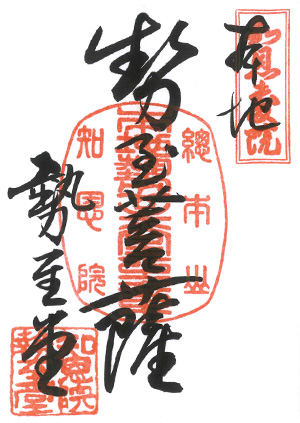 本地
勢至菩薩
勢至堂
總本山
知恩院
知恩院
勢至堂